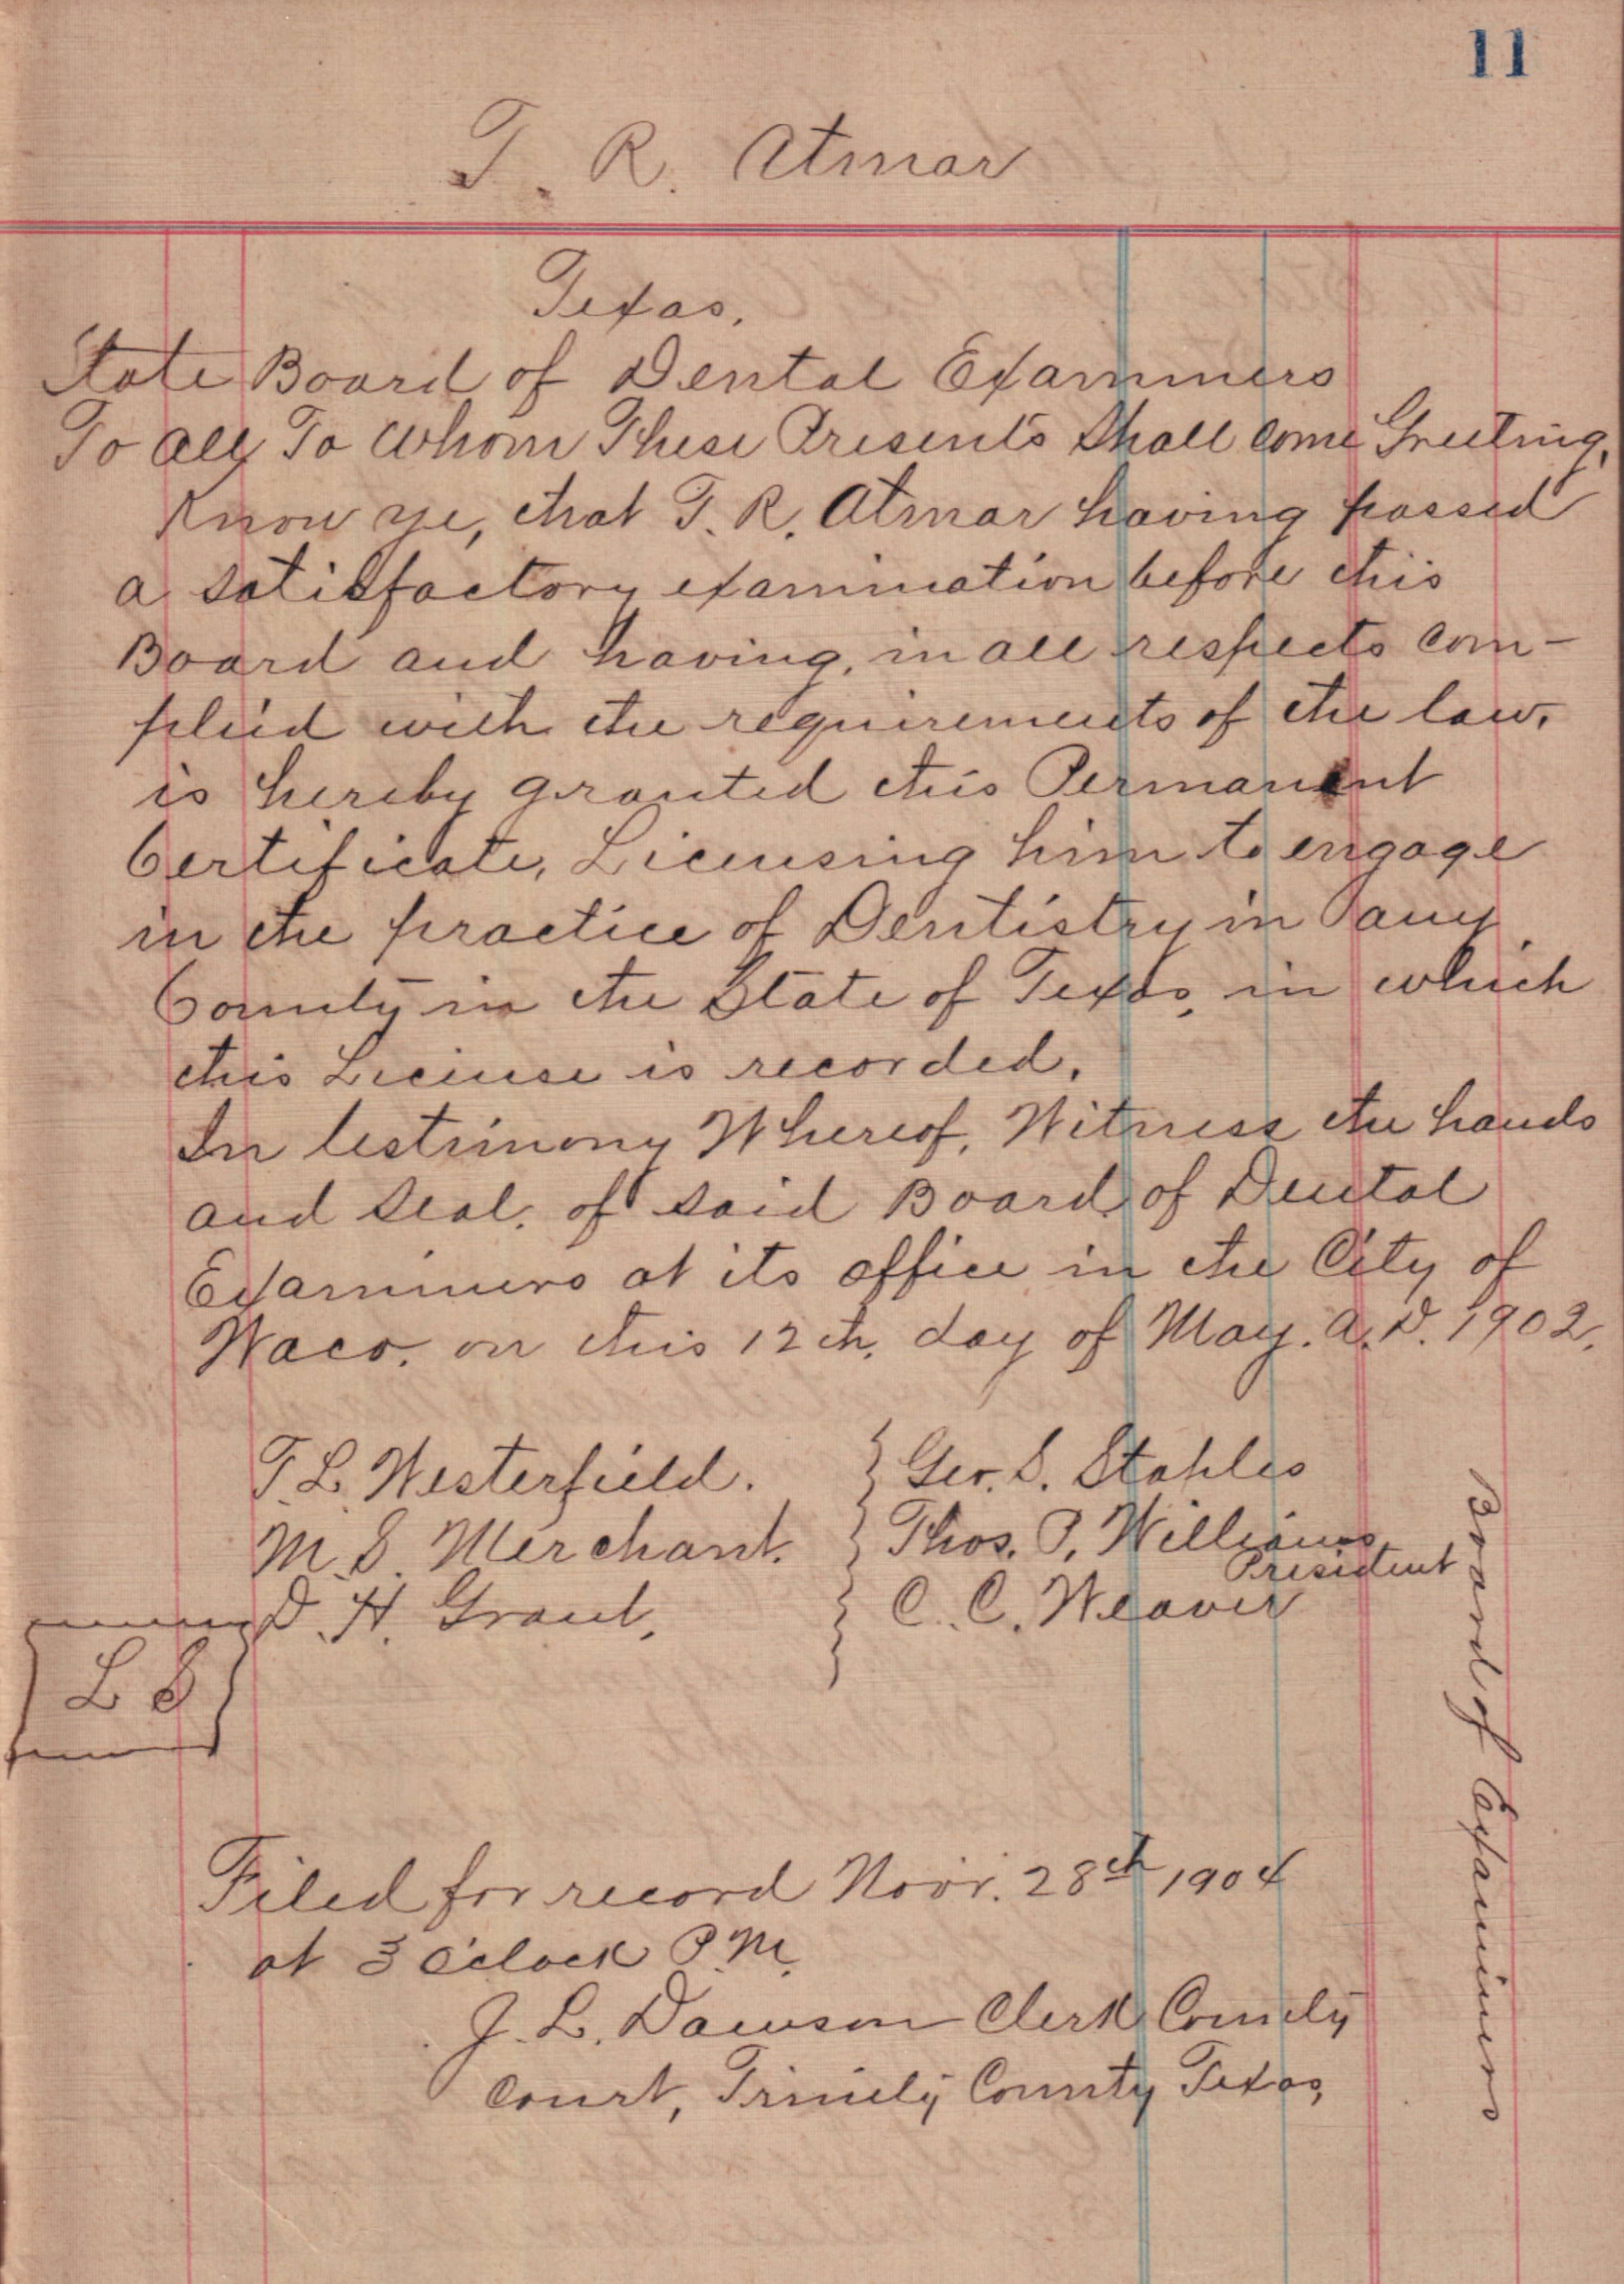 11
T. R. Atmar
Texas.
State Board of Dental Examiners
To all To Whom These Presents Shall Come Greeting,
Know ye, that T. R. Atmar having passed
a satisfactory examination before this
Board and having, in all respects com-
plied with the requirements of the law,
is hereby granted this Permanent
Certificate, Licensing him to engage
in the practice of Dentistry in any
County in the State of Texas, in which
this License is recorded.
In testimony Whereof, Witness the hands
and seal. of said Board of Dental
Examiners at its office in the City of
Waco. on this 12th. day of May. A.D. 1902.
T. L. Westerfield. } Geo. S. Staples
M. S. Merchant. } Thos. P. Williams
President
D. H. Grant, } C. C. Weaver
L S
Board of Examiners
Filed for record Novr. 28th 1904
at 3 O'clock P.M.
J. L. Dawson Clerk County
Court, Trinity County Texas,